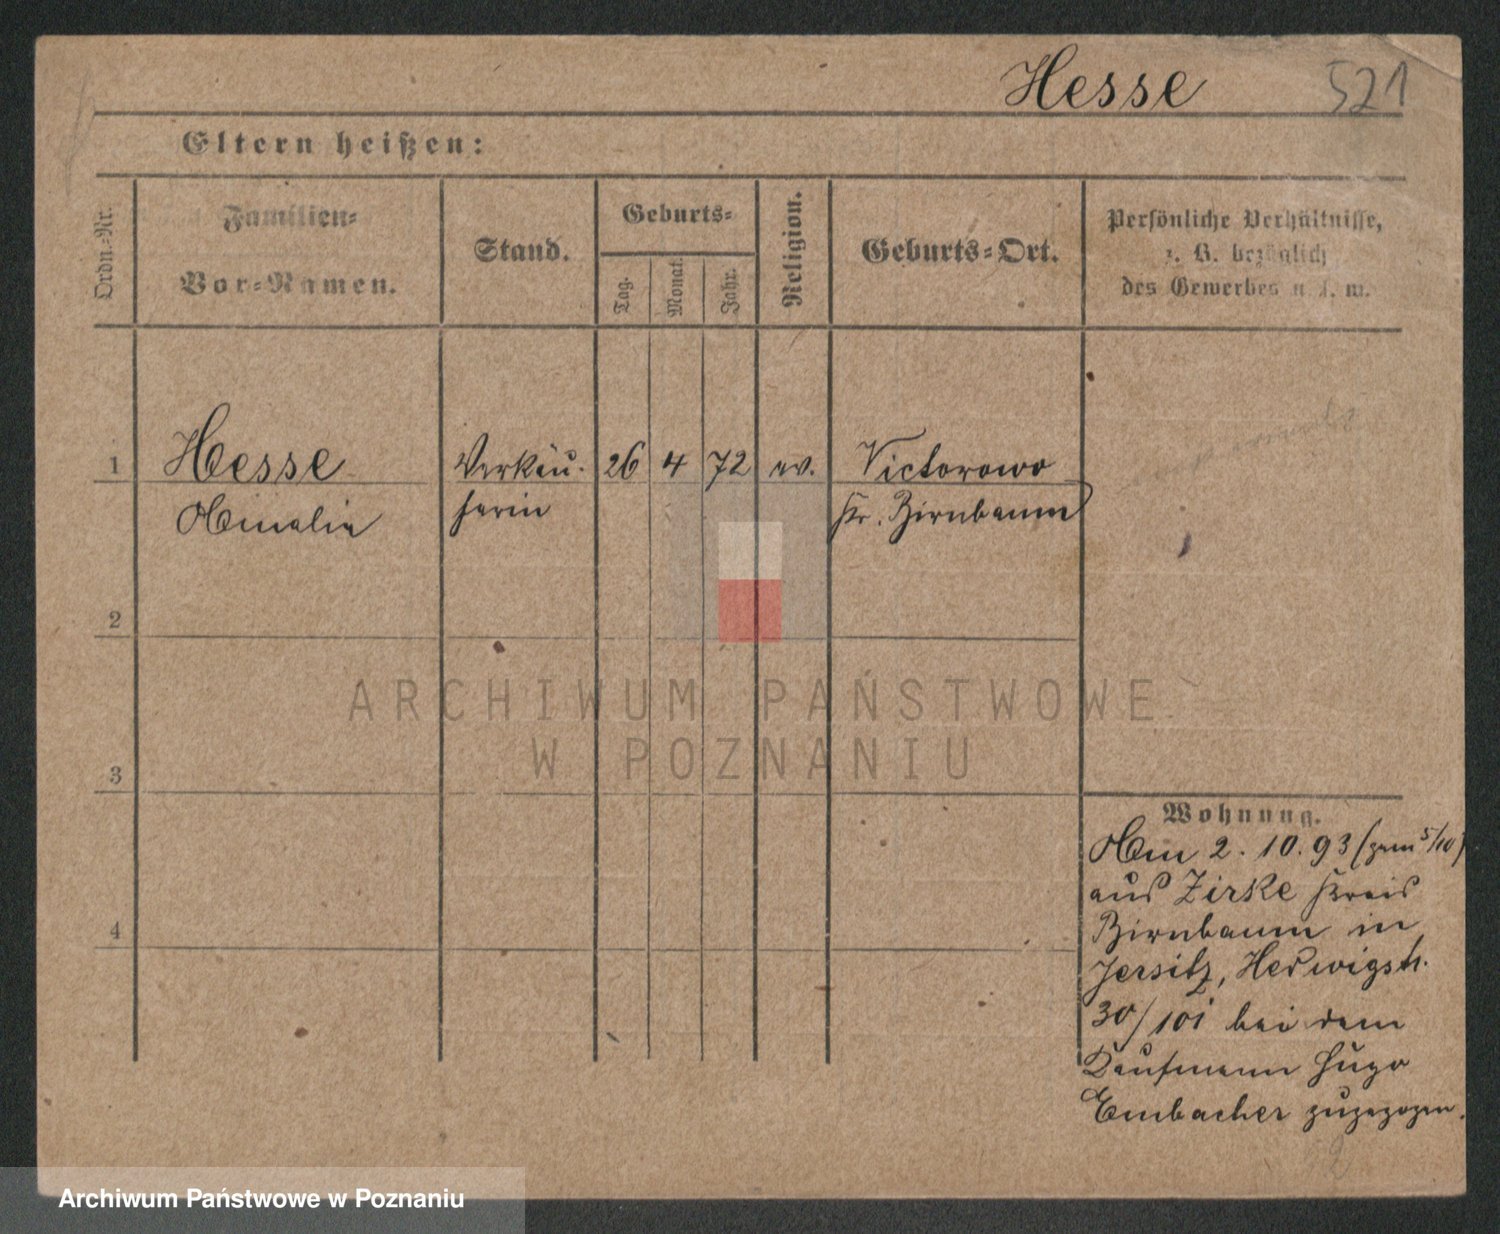 Hesse 521
Eltern heißen:
Ordn.-Nr.
Familien-
Vor-Namen.
Stand.
Geburts-
Tag.
Monat.
Jahr.
Religion.
Geburts-Ort.
Persönliche Verhältnisse,
z. B. bezüglich
des Gewerbes u. s. w.
1 Hesse Verkäu- 26 4 72 ev. Victorowo
Amalie ferin Kr. Birnbaum
2
3
4
Wohnung.
Am 2. 10. 93 (gem 5/10)
aus Zirke Kreis
Birnbaum in
Jersitz, Hedwigstr.
30/10 i bei dem
Kaufmann Hugo
Embacher zugezogen.
ARCHIWUM PAŃSTWOWE
W POZNANIU
Archiwum Państwowe w Poznaniu